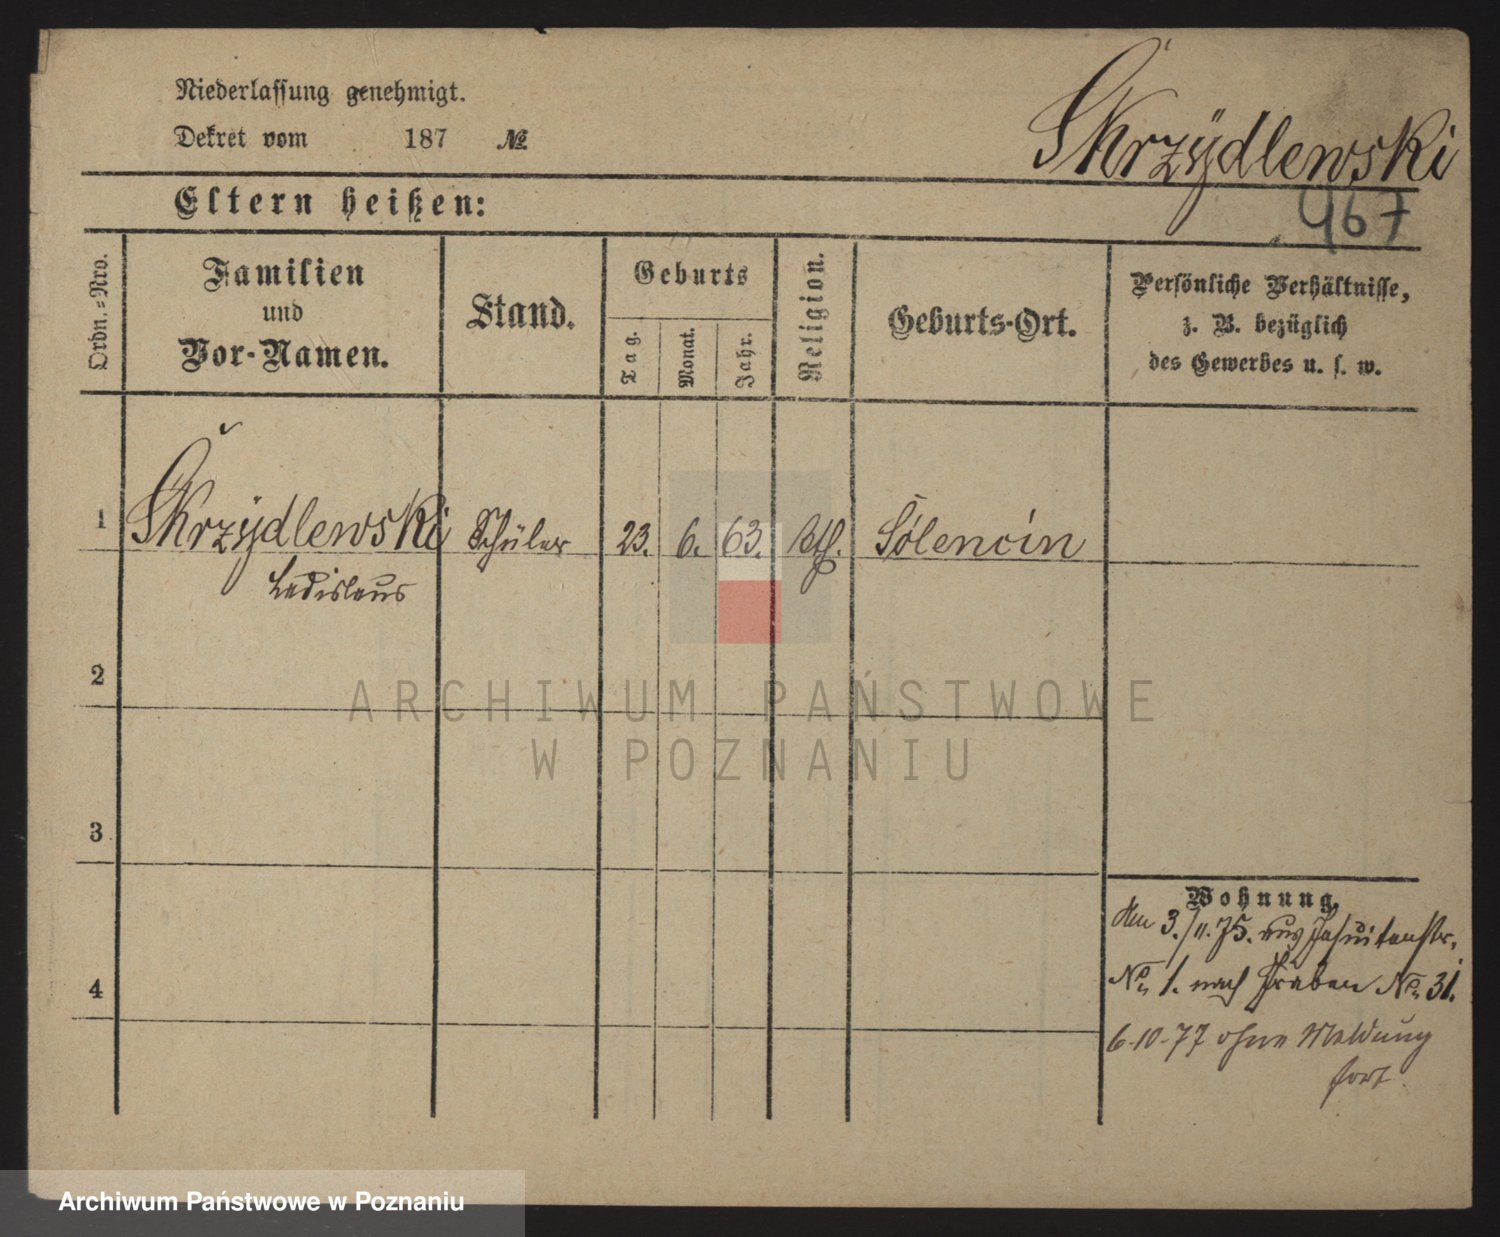 Niederlassung genehmigt.
Dekret vom 187 №
Skrzÿdlewski
Eltern heißen:
467
Ordn.-Nro.
Familien
und
Vor-Namen.
Stand.
Geburts
Tag.
Monat.
Jahr.
Religion.
Geburts-Ort.
Persönliche Verhältnisse,
z. B. bezüglich
des Gewerbes u. s. w.
1 Skrzÿdlewski Schüler 23. 6. 63. Kth. Solencin
Ladislaus
2
ARCHIWUM PAŃSTWOWE
W POZNANIU
3
Wohnung.
den 3./11.75. aus Jesuitenstr.
No. 1. nach Graben No. 31.
4
6-10-77 ohne Meldung
fort
Archiwum Państwowe w Poznaniu